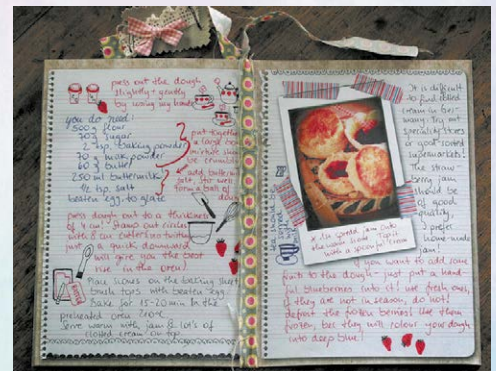 press out the dough
slightly + gently
by using your hands
you do need:
500 g flour
70 g sugar
2 tsp. baking powder
70 g milk powder
60 g butter
250 ml buttermilk
1/2 tsp. salt
beaten egg to glaze
put together
a large bowl
mixture should
be crumbly
add butter
salt. stir well
form a ball of
dough
press dough out to a thickness
of 4 cm! Stamp out circles
with 8 cm cutters
just a quick downward
will give you the best
rise in the oven!
Place scones on the baking sheet
brush tops with beaten egg.
Bake for 15-20 min in the
preheated oven 200°C
Serve warm with jam & lot's of
clotted cream on top
It is difficult
to find clotted
cream in Ger-
many. Try out
speciality stores
or good-sorted
supermarkets!
The straw-
berry jam
should be
of good
quality,
I prefer
home-made
jam!
tea should be
spread jam onto
the warm scone. Top it
with a spoonful cream
If you want to add some
fruits to the dough - just put a hand-
ful blueberries into it! Use fresh ones,
if they are not in season, do not
defrost the frozen berries! Use them
frozen, bec they will colour your dough
into deep blue!